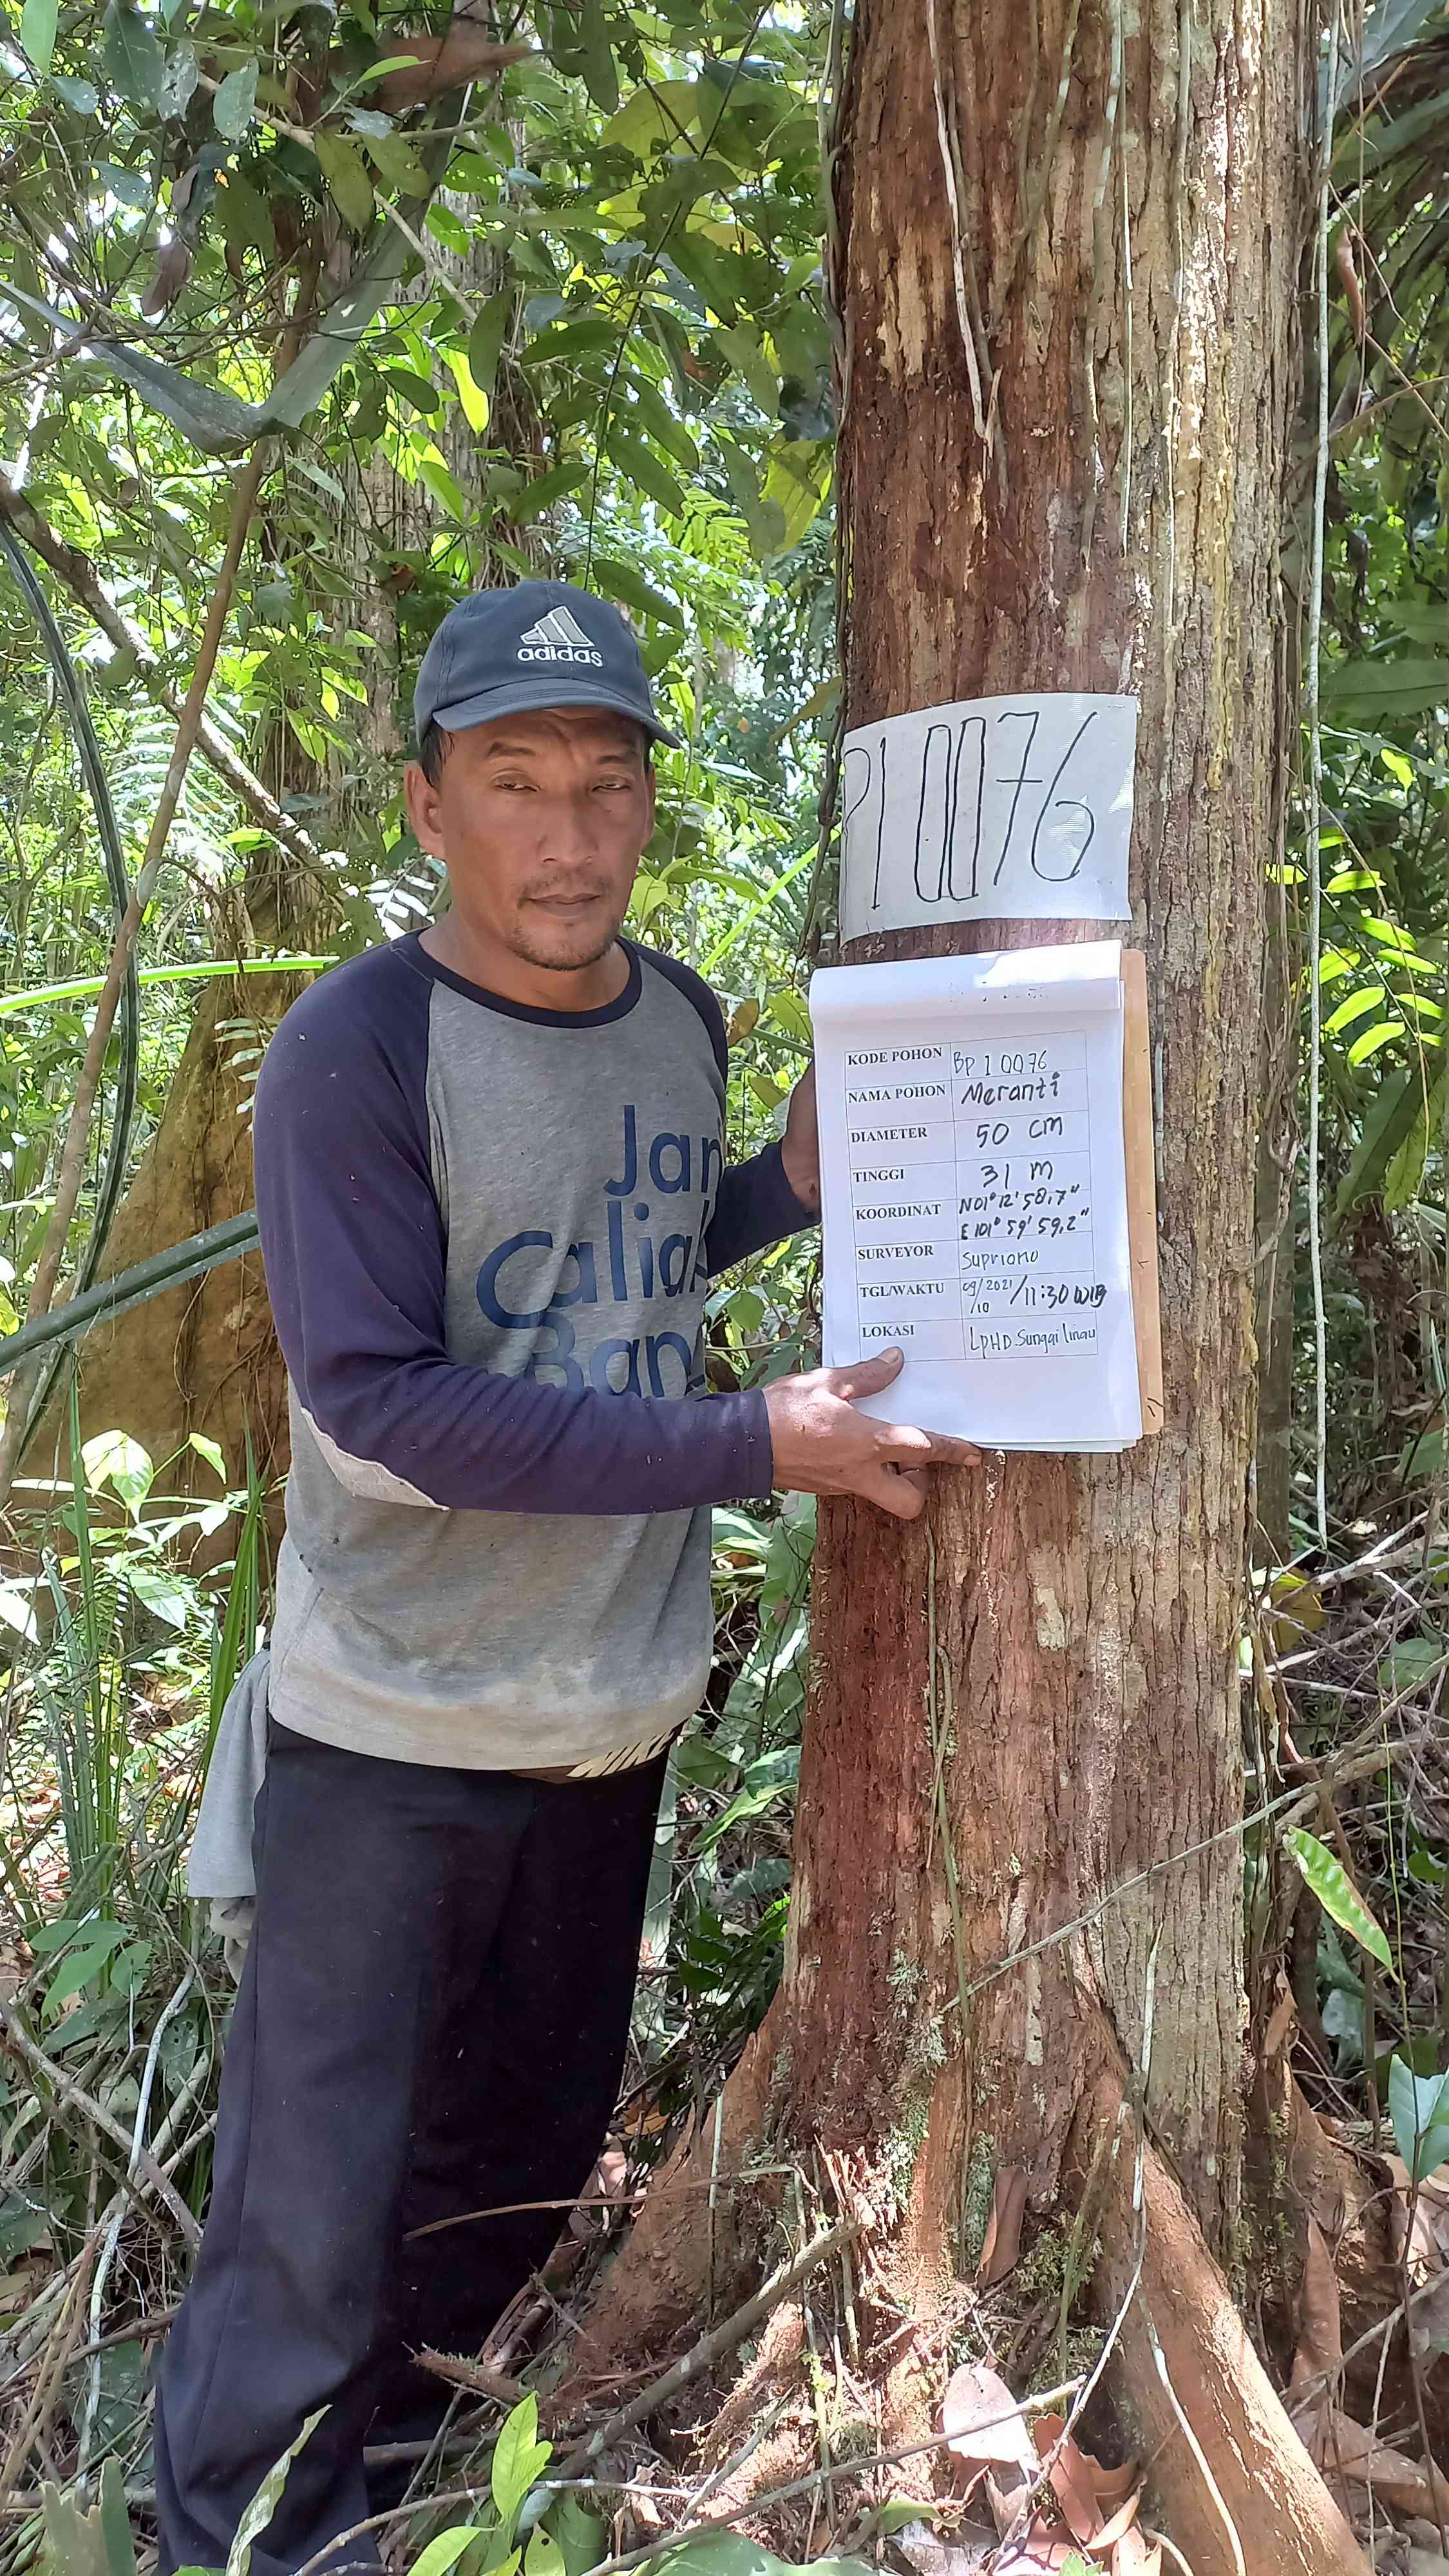 adidas
P10076
Jan
Caliak
Ban
KODE POHON BP 1 0076
NAMA POHON Meranti
DIAMETER 50 cm
TINGGI 31 m
KOORDINAT N01° 12' 58,7"
E 101° 59' 59,2"
SURVEYOR Supriono
TGL/WAKTU 09/2021 /11:30 WIB
/10
LOKASI LPHD.Sungai linau